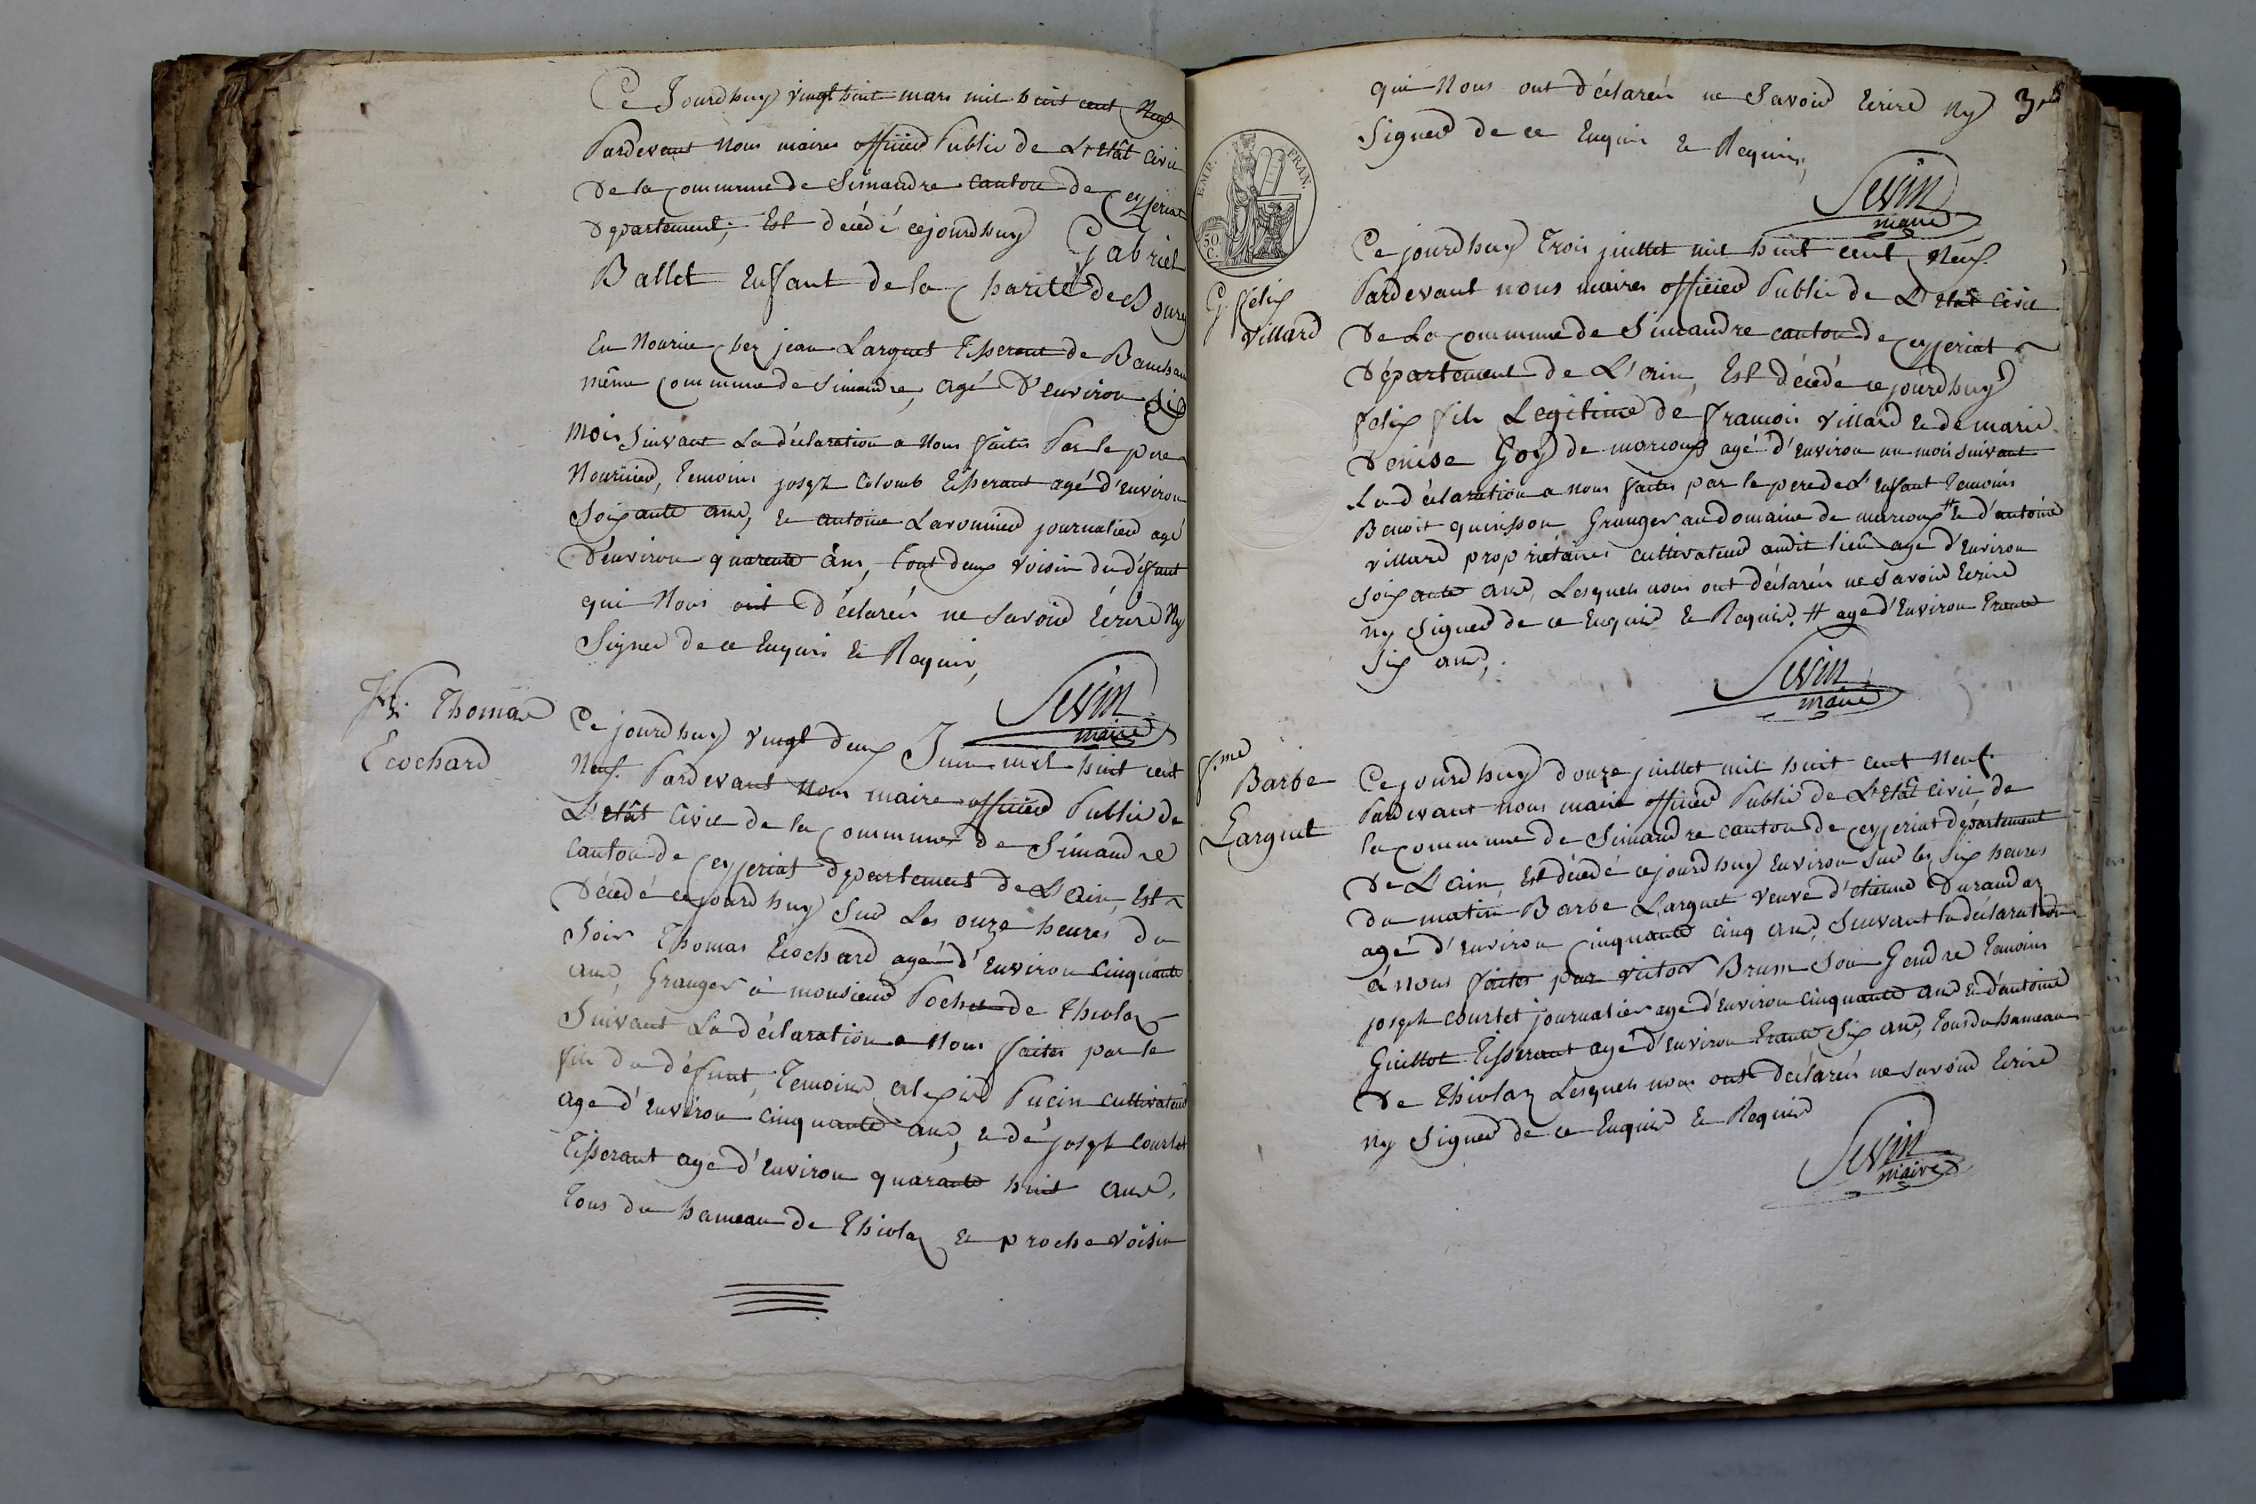 Ce Jourdhuy vingt huit mars mil huit cent Neuf
Pardevant Nous maire officier Public de L'Etât Civil
De la Commune de Simandre canton de Ceyzeriat
Département, Est décédé cejourdhuy Gabriel
Ballet Enfant de la Charité de Bourg
En Nourice chez jean Larguet Tisserant de Bauchan
même Commune de Simandre, agé D'environ Six
Mois suivant La déclaration a Nous faites Par le pere
Nouricier, Temoins joseph Colomb Tisserant agé d'Environ
Soixante ans, et antoine Laronnier journalier agé
D'environ quarente ans, tout deux Voisin du défunt
qui Nous ont Déclarés ne Savoir Ecrire Ny
Signer de ce Enquis et Requis,
Sevin
maire
Thomas
Ecochard
Ce jourdhuy vingt deux Juin mil huit cent
Neuf. Pardevant Nous maire officier Public de
L'Etât Civil de la Commune de Simandre
Canton de Ceyzeriat département de L'Ain, Est
Décédé cejourdhuy Sur Les onze heures du
Soir Thomas Ecochard agé d'Environ Cinquante
ans, Granger à monsieur Pochet de Thiolaz
Suivant La déclaration a Nous faites par le
fils du défunt, Temoins alexis Pucin cultivateur
age d'Environ cinquante ans, et de joseph Courtet
Tisserant age d'Environ quarante huit ans,
Tous du hameau de Thiolaz et proche Voisin
qui Nous ont Déclarés ne Savoir Ecrire Ny
3
Signer de ce Enquis et Requis,
Sevin
maire
EMP. FRAN.
50 C.
G. félix
Villard
Ce jourdhuy Trois juillet mil huit cent Neuf.
Pardevant nous maires officier Public de L'Etat Civil
De La Commune de Simandre canton de Ceyzeriat
Département de L'Ain, Est décédé ce jourdhuy
felix fils Legitime de francois Villard et de marie
Denise Goy de marcoux agé d'Environ un mois suivant
La déclaration a nous faites par le pere de L'Enfant Temoins
Benoit quinsson Granger au domaine de marcoux # et d'antoine
Villard propriétaires cultivateur audit lieu age d'Environ
Soixante ans, Lesquels nous ont déclarés ne Savoir Ecrire
ny Signer de ce Enquis et Requis. # age d'Environ Trente
Six ans,
Sevin
maire
f.me
Barbe
Larguet
Ce jourdhuy douze juillet mil huit cent Neuf.
Pardevant Nous maire officier Public de L'Etât Civil de
la commune de Simandre canton de Ceyzeriat département
De L'Ain, Est décédé cejourdhuy Environ sur les six heures
du matin Barbe Larguet Veuve d'etienne Durandaz
agé d'Environ Cinquante cinq ans, Suivant la déclaration
à nous faites par Victor Brum Son Gendre Temoins
joseph courtet journalier age d'Environ cinquante ans et d'antoine
Guillot Tisserant agé d'Environ Trente Six ans, Tous du hameau
De Thiolaz Lesquels nous ont Déclarés ne savoir Ecrire
ny Signer de ce Enquis et Requis
Sevin
maire